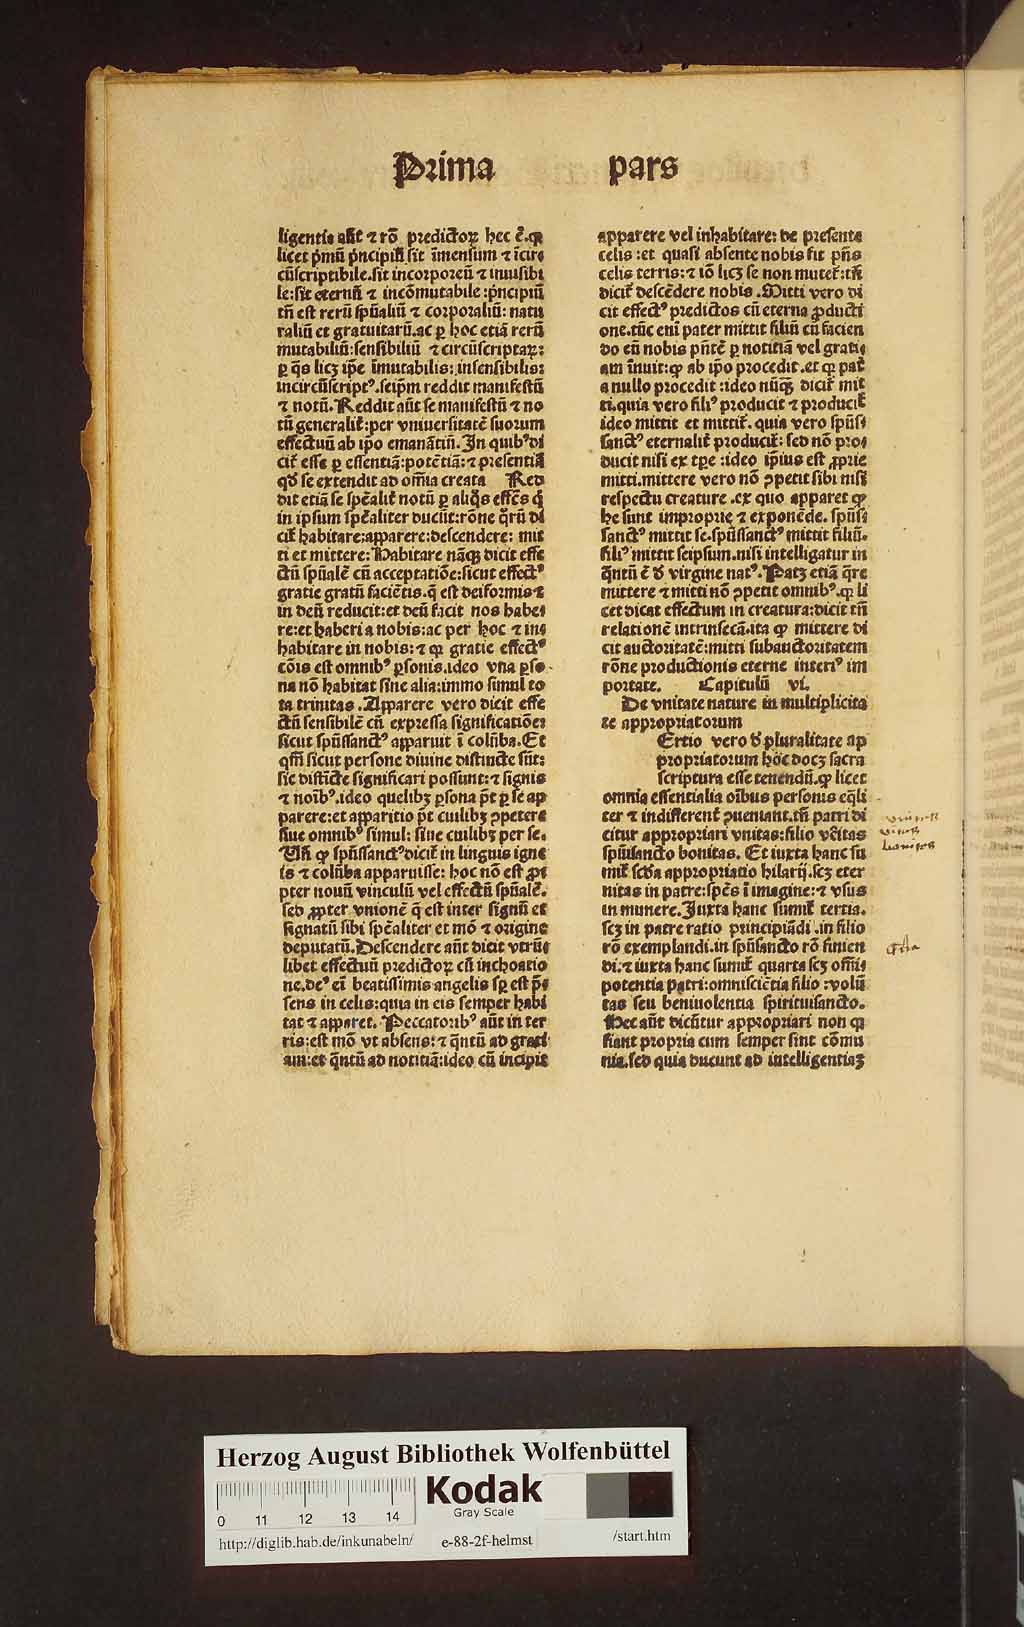 Prima pars
ligentis aūt ⁊ rō predictoꝝ hec ē. ꝙ
licet pͥmū pͥncipiū sit īmensum ⁊ īcir⸗
cūscriptibile. sit incorporeū ⁊ inuisibi
le: sit eternū ⁊ incōmutabile: pͥncipiū
tn̄ est rerū spūaliū ⁊ corporaliū: natu
raliū et gratuitarū. ac ꝑ hoc etiā rerū
mutabiliū: sensibiliū ⁊ circūscriptaꝝ:
ꝑ qͣs licꝫ ip̄e īmutabilis: insensibilis:
incircūscriptꝰ. seip̄m reddit manifestū
⁊ notū. Reddit aūt se manifestū ⁊ no
tū generalit̄: per vniuersitatē suorum
effectuū ab ip̄o emanātiū. In quibꝰ di
cit̄ esse ꝑ essentiā: potētiā: ⁊ presentiā
qd̄ se extendit ad om̄ia creata Red
dit etiā se spēalit̄ notū ꝑ aliqͦs effc̄s q̄
in ipsum spēaliter ducūt: rōne qͦrū di
cit̄ habitare: apparere: descendere: mit
ti et mittere: Habitare nāqꝫ dicit effe
ctū spūalē cū acceptatiōe: sicut effectꝰ
gratie gratū faciētis. q̄ est deiformis ⁊
in deū reducit: et deū facit nos habe⸗
re: et haberi a nobis: ac per hoc ⁊ in⸗
habitare in nobis: ⁊ qꝛ gratie effectꝰ
cōis est omnibꝰ ꝑsonis. ideo vna ꝑso⸗
na nō habitat sine alia: immo simul to
ta trinitas. Apparere vero dicit effe
ctū sensibilē cū expressa significatiōe:
sicut spūssanctꝰ apparuit ī colūba. Et
qm̄ sicut persone diuine distincte sūt:
sic distīcte significari possunt: ⁊ signis
⁊ noībꝰ. ideo quelibꝫ ꝑsona pōt ꝑ se ap
parere: et apparitio pt̄ cuilibꝫ ꝯpetere
siue omnibꝰ simul: siue cuilibꝫ per se.
Vn̄ ꝙ spūssanctꝰ dicit̄ in linguis igne
is ⁊ colūba apparuisse: hoc nō est ꝓp⸗
pter nouū vinculū vel effectū spūalē.
sed ꝓpter vnionē q̄ est inter signū et
signatū sibi spēaliter et mō ⁊ origine
deputatū. Descendere aūt dicit vtrū⸗
libet effectuū predictoꝝ cū inchoatio
ne. deꝰ eī beatissimis angelis sp̄ est p̄e⸗
sens in celis: quia in eis semper habi
tat ⁊ apparet. Peccatoribꝰ aūt in ter
ris: est mō vt absens: ⁊ qͣntū ad grati
am: et qͣntū ad notitiā: ideo cū incipit
apparere vel inhabitare: de presente
celis: et quasi absente nobis fit p̄ns
celis terris: ⁊ iō licꝫ se non mutet̄: tn̄
dicit̄ descēdere nobis. Mitti vero di
cit effectꝰ predictos cū eterna ꝓducti
one. tūc enī pater mittit filiū cū facien
do eū nobis pn̄tē ꝑ notitiā vel grati⸗
am īnuit: ꝙ ab ip̄o procedit. et qꝛ pat̄
a nullo procedit: ideo nūqͣꝫ dicit̄ mit
ti. quia vero filiꝰ producit ⁊ producit̄
ideo mittit et mittit̄. quia vero spūs⸗
sanctꝰ eternalit̄ producit̄: sed nō pro⸗
ducit nisi ex tp̄e: ideo ip̄ius est ꝓprie
mitti. mittere vero nō ꝯpetit sibi nisi
respectu creature. ex quo apparet ꝙ
he sunt improprie ⁊ exponēde. spūs⸗
sanctꝰ mittit se. spūssanctꝰ mittit filiū.
filiꝰ mittit seipsum. nisi intelligatur in
qͣntū ē d̄ virgine natꝰ. Patꝫ etiā qͣre
mittere ⁊ mitti nō ꝯpetit omnibꝰ. qꝛ li
cet dicat effectum in creatura: dicit tn̄
relationē intrinsecā. ita ꝙ mittere di
cit auctoritatē: mitti subauctoritatem
rōne productionis eterne interiꝰ im
portate. Capitulū vi.
De vnitate nature in multiplicita
te appropriatorum
Ertio vero d̄ pluralitate ap
propriatorum hoc docꝫ sacra
scriptura esse tenendū. ꝙ licet
omnia essentialia oībus personis eq̄li
ter ⁊ indifferent̄ ꝯueniant. tn̄ patri di
citur appropriari vnitas: filio vēitas
spūisancto bonitas. Et iuxta hanc su
mit̄ scd̄a appropriatio hilarij. scꝫ eter
nitas in patre: spēs ī imagine: ⁊ vsus
in munere. Iuxta hanc sumit̄ tertia.
scꝫ in patre ratio principiādi. in filio
rō exemplandi. in spūsancto rō finien
di. ⁊ iuxta hanc sumit̄ quarta scꝫ om̄i⸗
potentia patri: omnisciētia filio: volū
tas seu beniuolentia spirituisancto.
Hec aūt dicūtur appropriari non qꝛ
fiant propria cum semper sint cōmu
nia. sed quia ducunt ad intelligentiaꝫ
Herzog August Bibliothek Wolfenbüttel
Kodak
Gray Scale
0 11 12 13 14
http://diglib.hab.de/inkunabeln/ e-88-2f-helmst /start.htm